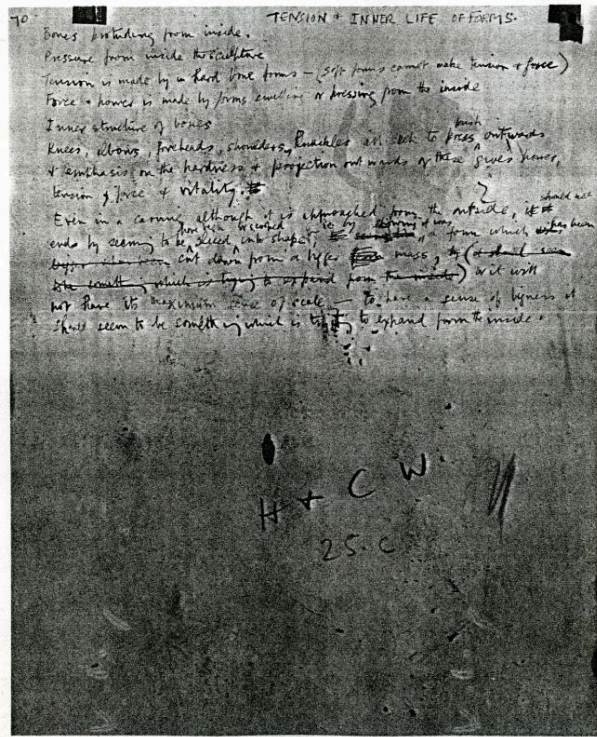 70
TENSION + INNER LIFE OF FORMS.
Bones protruding from inside.
Pressure from inside the sculpture
Tension is made by in hard bone forms – (soft forms cannot make tension + force)
Force + power is made by forms swelling or pressing from the inside
Inner structure of bones
Knees, elbows, foreheads, shoulders, Knuckles all seek to press push outwards
+ emphasis on the hardness + projection outwards of these gives power,
tension + force + vitality.
Even in a carving although it is approached from the outside, it should not
ends by seeming to be sliced into shape, from which has been
cut down from a bigger mass, or it will
not have its maximum sense of scale — to have a sense of bigness it
should seem to be something which is trying to expand from the inside.
H + C W.
25. C